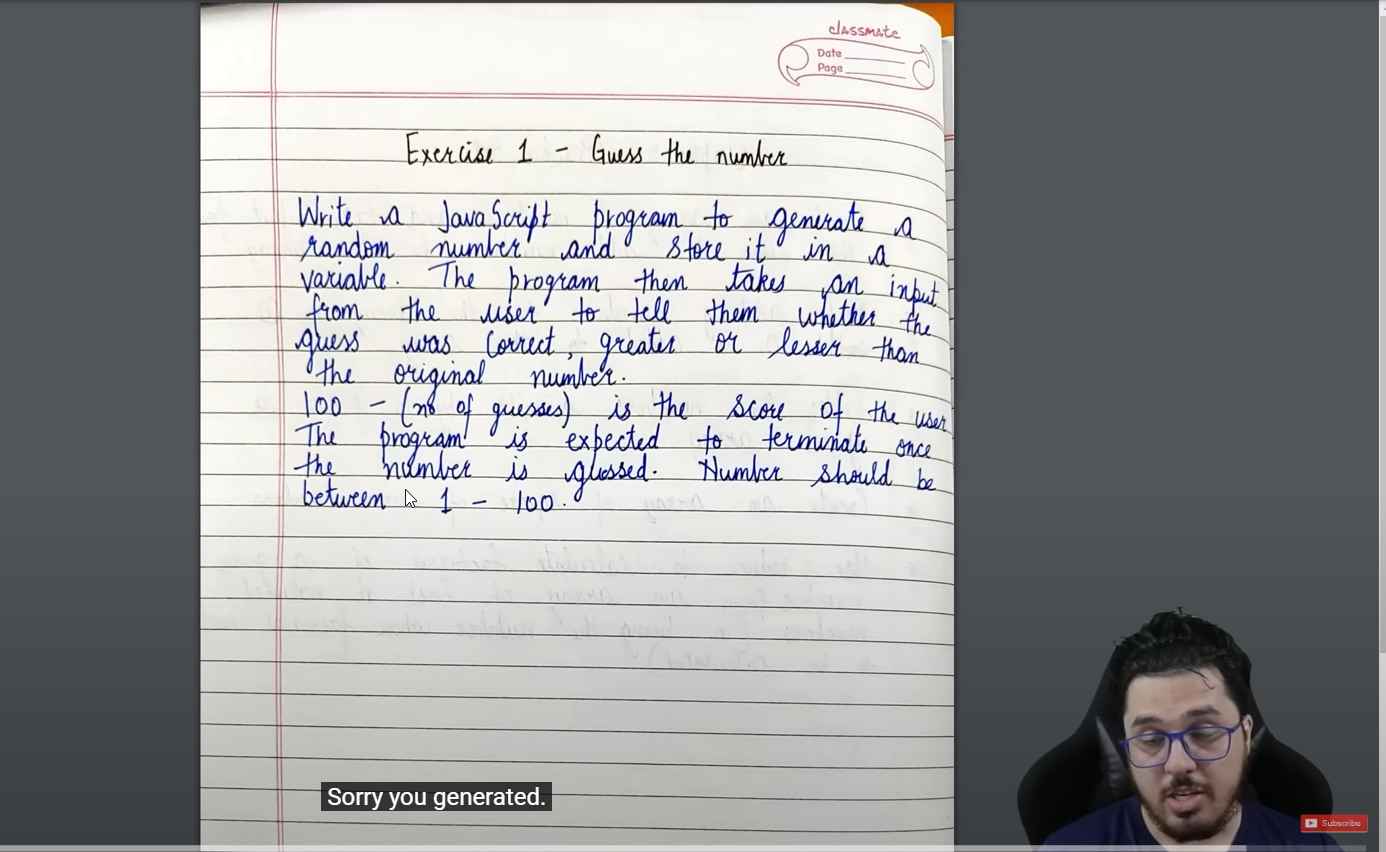 classmate
Date
Page
Exercise 1 - Guess the number
Write a JavaScript program to generate a
random number and store it in a
variable. The program then takes an input
from the user to tell them whether the
guess was correct, greater or lesser than
the original number.
100 - (no of guesses) is the score of the user
The program is expected to terminate once
the number is guessed. Number should be
between 1 - 100.
Sorry you generated.
Subscribe